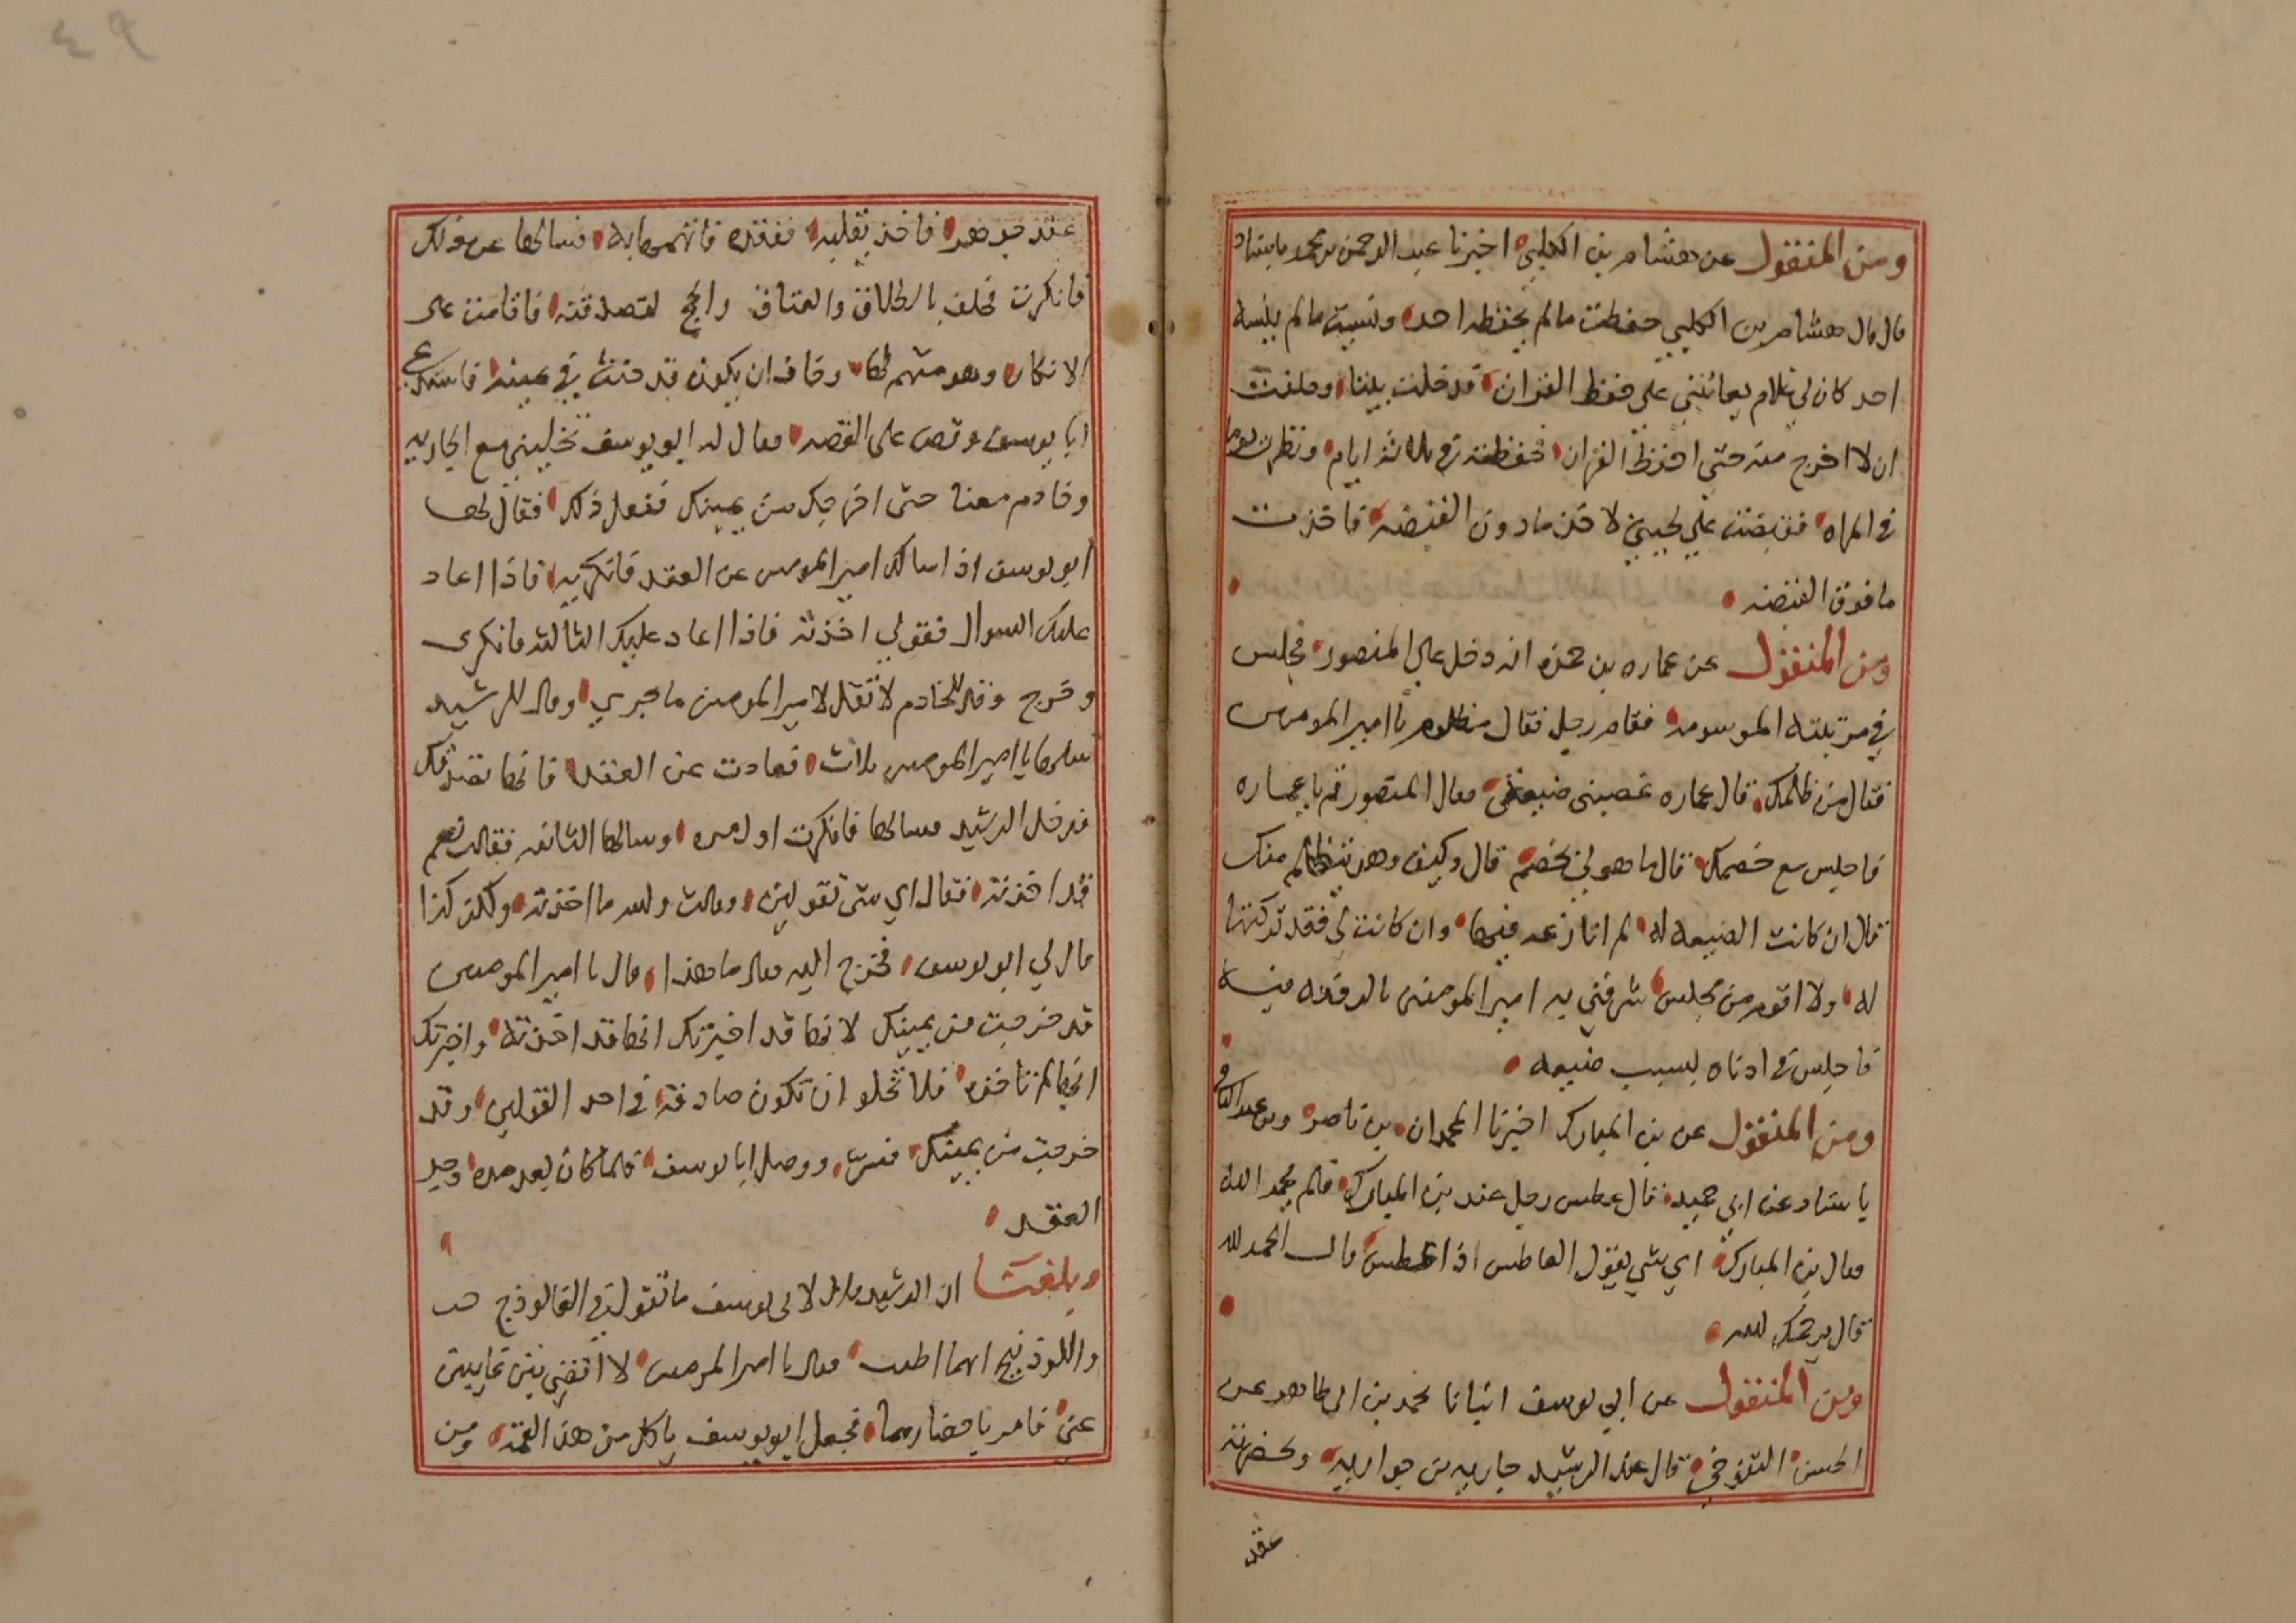 ومن المنقول عن هشام بن الكلبي اخبرنا عبد الرحمن بن محمد باسناد
قال قال هشام بن الكلبي حفظت مالم يحفظه احد ونسيت مالم ينسه
احد كان لي غلام يعاتبني على حفظ القران فدخلت بيتا وحلفت
ان لا اخرج منه حتى احفظ القران فحفظته في ثلاثة ايام ونظرت يوما
في المراه فقبضت على لحيتي لاخذ مادون القبضه فاخذت
ما فوق القبضه
ومن المنقول عن عماره بن حمزه انه دخل على المنصور فجلس
في مرتبته الموسومه فقام رجل فقال مظلوم يا امير المومنين
فقال من ظلمك قال عماره غصبني ضيعتي فقال المنصور قم يا عماره
فاجلس مع خصمك قال ما هو لي بخصم قال وكيف وهو يتظلم منك
قال ان كانت الضيعه له لم انازعه فيها وان كانت لي فقد تركتها
له ولا اقوم من مجلس شرفني به امير المومنين بالرفعه فيه
فاجلس في ادناه بسبب ضيعه
ومن المنقول عن بن المبارك اخبرنا المحمدان بن ناصر وبن عبد الباقي
باسناد عن ابي حميد قال عطس رجل عند بن المبارك فلم يحمد الله
فقال بن المبارك اي شي يقول العاطس اذا عطس قال الحمد لله
قال يرحمك الله
ومن المنقول عن ابي يوسف انبانا محمد بن ابي طاهر عن
الحسن التنوخي قال عند الرشيد جاريه من جواريه وبحضرته
عقد
عقد جوهر فاخذ يقلبه ففقده فاتهمها به فسالها عن ذلك
فانكرت فحلف بالطلاق والعتاق والحج لتصدقنه فاقامت على
الانكار وهو متهم لها وخاف ان يكون قد حنث في يمينه فاستدعى
ابا يوسف وقص على القصه فقال له ابو يوسف تخليني مع الجاريه
وخادم معنا حتى اخرجك من يمينك ففعل ذلك فقال لها
ابو يوسف اذا سالك امير المومنين عن العقد فانكريه فاذا اعاد
عليك السوال فقولي اخذته فاذا اعاد عليك الثالثه فانكري
وخرج وقال للخادم لا تقل لامير المومنين ما جرى وقال للرشيد
سلها يا امير المومنين ثلاث فعادت عن العقد فانها تصدقك
فدخل الرشيد فسالها فانكرت اول مره وسالها الثانيه فقالت نعم
قد اخذته فقال اي شي تقولين وقالت والله ما اخذته ولكن كذا
قال لي ابو يوسف فخرج اليه فقال ما هذا قال يا امير المومنين
قد خرجت من يمينك لانها قد اخبرتك انها قد اخذته واخبرتك
انها لم تاخذه فلا تخلو ان تكون صادقه في احد القولين وقد
خرجت من يمينك فسر ووصل ابا يوسف فلما كان بعد مده وجد
العقد
وبلغنا ان الرشيد قال لابي يوسف ما تقول في الفالوذج
واللوذنيج ايهما اطيب فقال يا امير المومنين لا اقضي بين غايبين
عني فامر باحضارهما فجعل ابو يوسف ياكل من هذا لقمه ومن